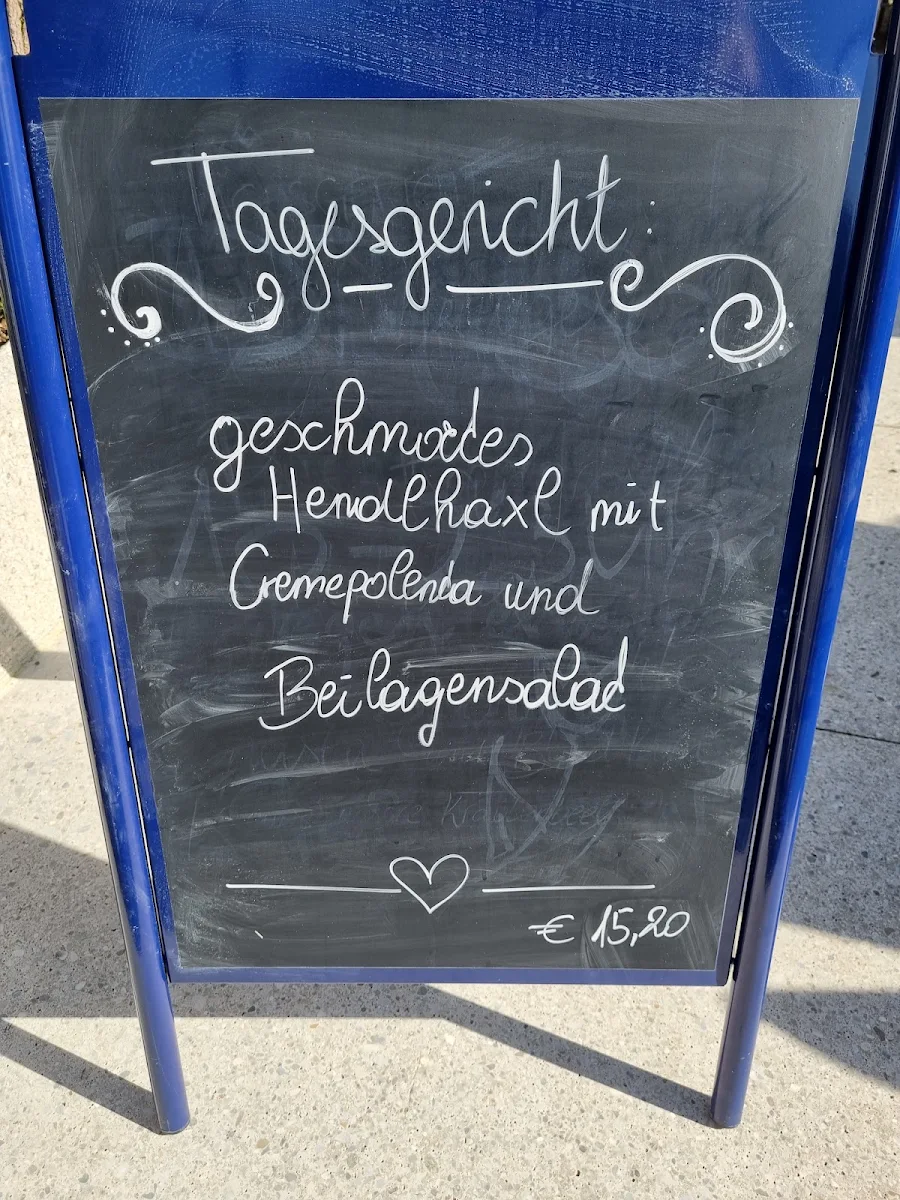 Tagesgericht:
geschmortes
Hendlhaxl mit
Cremepolenta und
Beilagensalad
€ 15,20